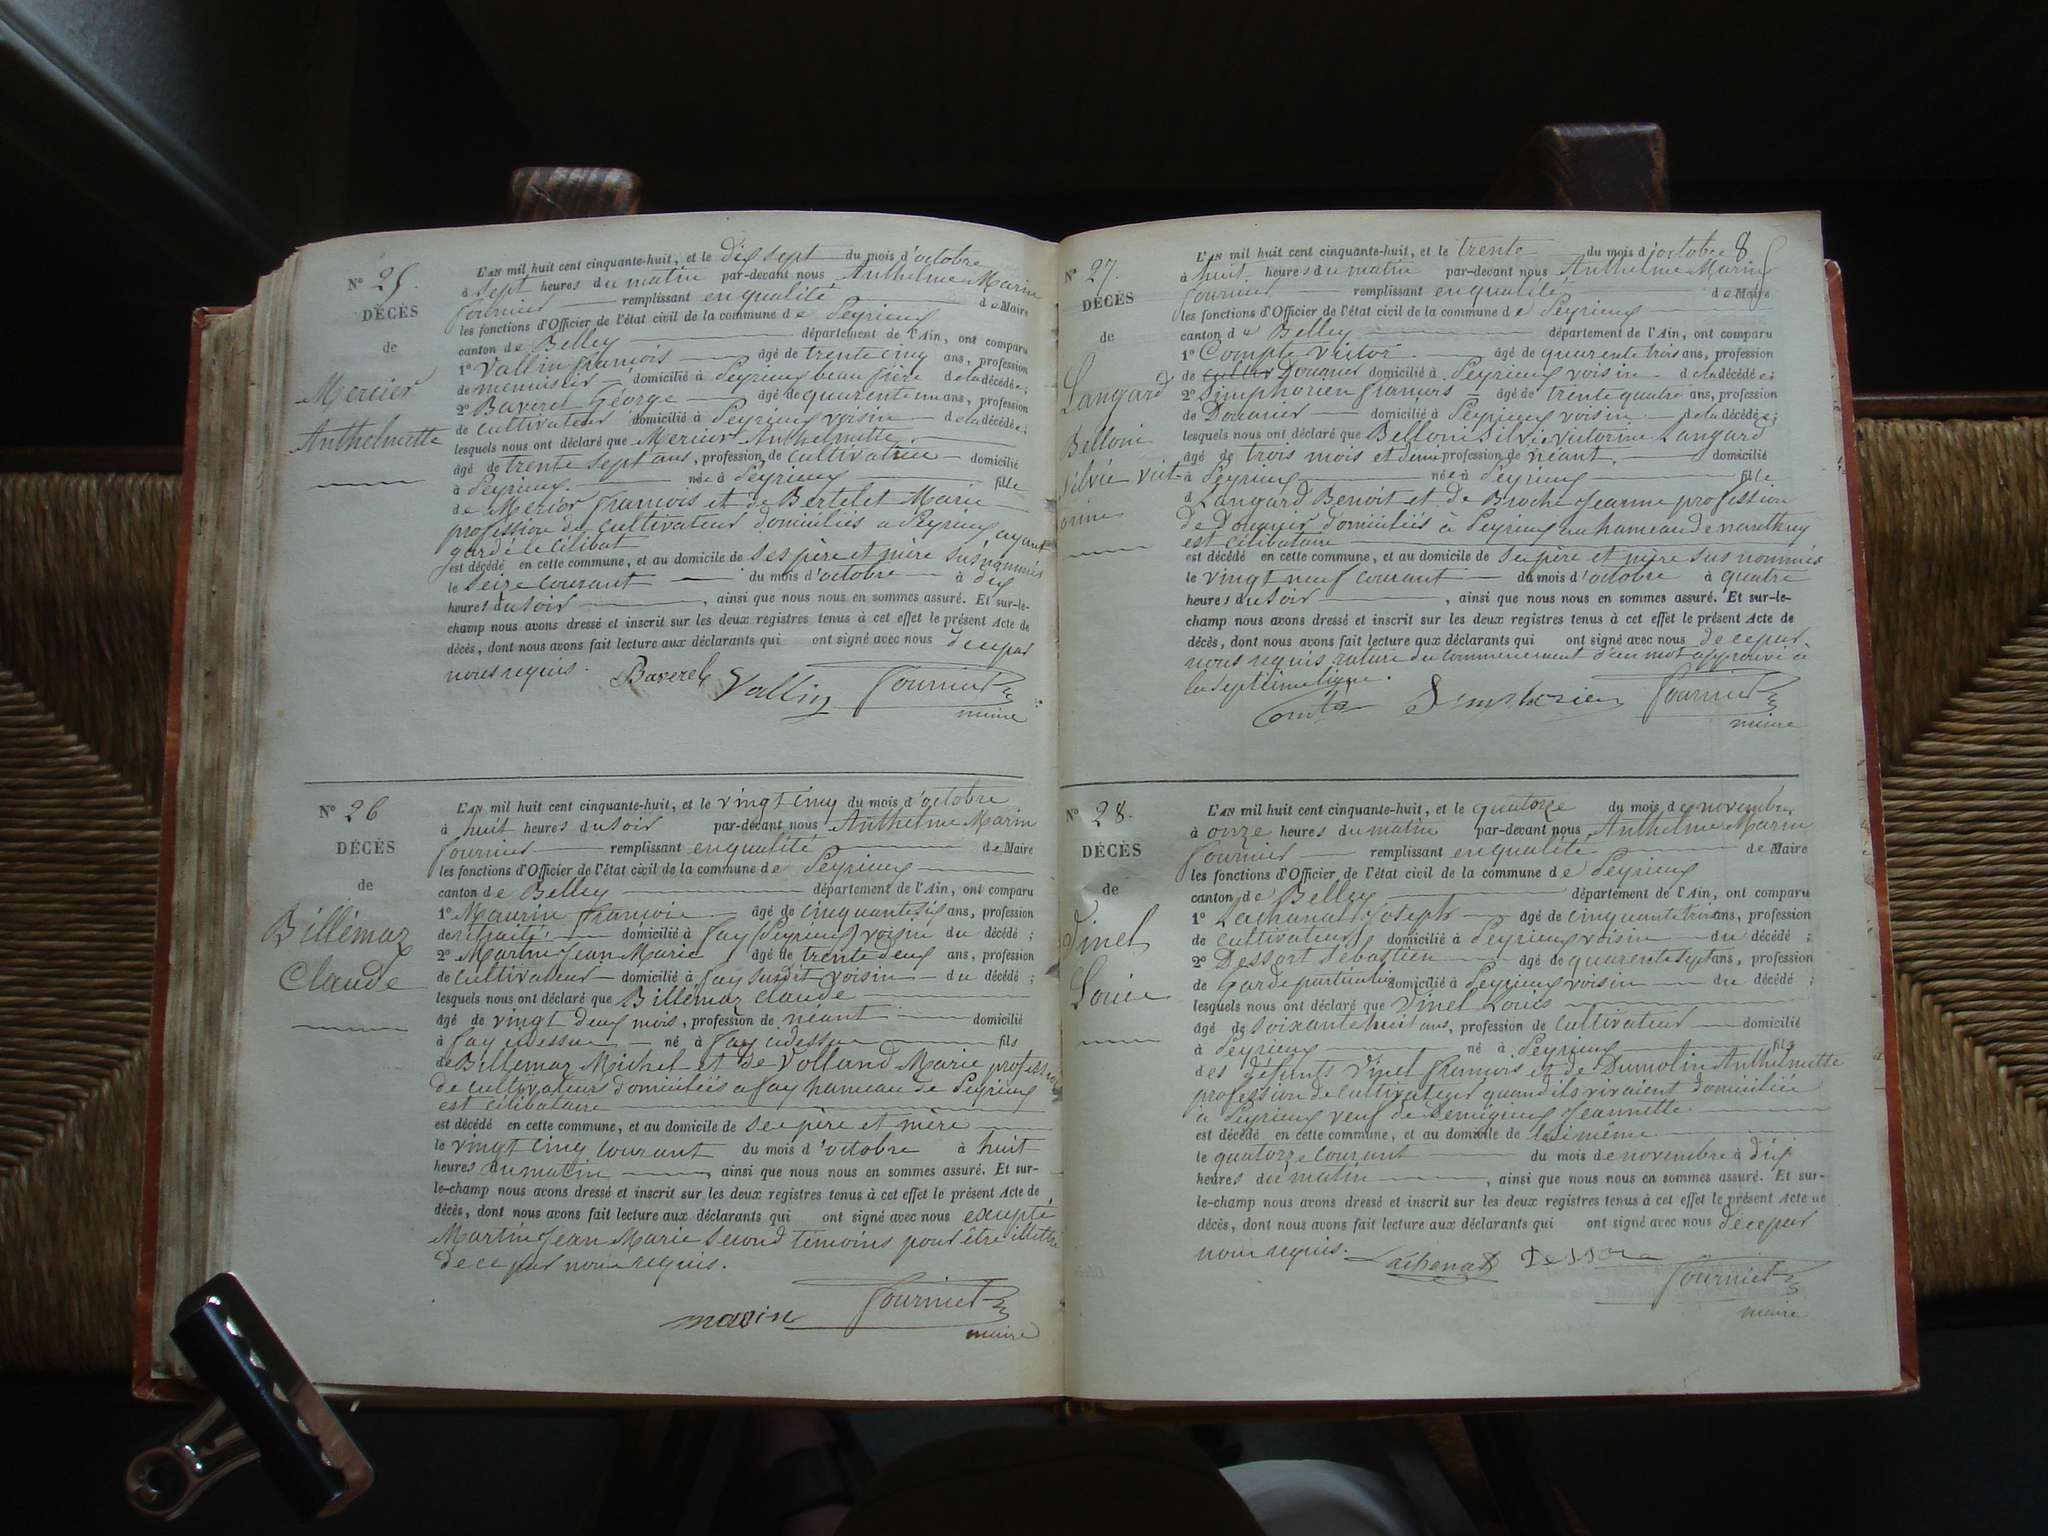 N° 25.
DÉCÈS
de
Mercier
Anthelmette
L'AN mil huit cent cinquante-huit, et le dix sept du mois d'octobre
à sept heures du matin par-devant nous Anthelme Marin
Fournier remplissant en qualité de Maire
les fonctions d'Officier de l'état civil de la commune de Peyrieux
canton de Belley département de l'Ain, ont comparu
1° Vallin françois âgé de trente cinq ans, profession
de menuisier domicilié à Peyrieux beau frère de la décédée;
2° Baverel George âgé de quarente un ans, profession
de cultivateur domicilié à Peyrieux voisin de la décédée;
lesquels nous ont déclaré que Mercier Anthelmette
âgé de trente sept ans, profession de cultivatrice domicilié
à Peyrieux née à Peyrieux fille
de Mercier françois et de Bertelet Marie
profession de cultivateur domiciliés a Peyrieux ayant
gardé le célibat
est décédé en cette commune, et au domicile de ses père et mère susnommés
le seize courant du mois d'octobre à dix
heures du soir, ainsi que nous nous en sommes assuré. Et sur-le-
champ nous avons dressé et inscrit sur les deux registres tenus à cet effet le présent Acte de
décès, dont nous avons fait lecture aux déclarants qui ont signé avec nous de ce par
nous requis.
Baverel Vallin Fournier
maire
N° 26
DÉCÈS
de
Billémaz
Claude
L'AN mil huit cent cinquante-huit, et le vingt cinq du mois d'octobre
à huit heures du soir par-devant nous Anthelme Marin
Fournier remplissant en qualité de Maire
les fonctions d'Officier de l'état civil de la commune de Peyrieux
canton de Belley département de l'Ain, ont comparu
1° Maurin françois âgé de cinquante six ans, profession
de retraité domicilié à fay (Peyrieux) voisin du décédé;
2° Martin Jean Marie âgé de trente deux ans, profession
de cultivateur domicilié à fay susdit voisin du décédé;
lesquels nous ont déclaré que Billémaz claude
âgé de vingt deux mois, profession de néant domicilié
à fay cidessus né à fay cidessus fils
de Billemaz Michel et de Volland Marie profession
de cultivateurs domiciliés a fay hameau de Peyrieux
est célibataire
est décédé en cette commune, et au domicile de ses père et mère
le vingt cinq courant du mois d'octobre à huit
heures du matin, ainsi que nous nous en sommes assuré. Et sur-
le-champ nous avons dressé et inscrit sur les deux registres tenus à cet effet le présent Acte de
décès, dont nous avons fait lecture aux déclarants qui ont signé avec nous excepté
Martin Jean Marie second témoins pour être illettré
de ce par nous requis.
Fournier
maire
8
N° 27.
DÉCÈS
de
Langard
Belloni
Silvie Vict-
orine
L'AN mil huit cent cinquante-huit, et le trente du mois d'octobre
à huit heures du matin par-devant nous Anthelme Marin
Fournier remplissant en qualité de Maire
les fonctions d'Officier de l'état civil de la commune de Peyrieux
canton de Belley département de l'Ain, ont comparu
1° Compte victor âgé de quarente trois ans, profession
de Douanier domicilié à Peyrieux voisin de la décédée;
2° Simphorien françois âgé de trente quatre ans, profession
de Douanier domicilié à Peyrieux voisin de la décédée;
lesquels nous ont déclaré que Belloni Silvie victorine Langard
âgé de trois mois et demi profession de néant domicilié
à Peyrieux née à Peyrieux fille
d Langard Benoit et de Broche Jeanne profession
de Douanier domiciliés à Peyrieux au hameau de nanthuy
est célibataire
est décédé en cette commune, et au domicile de ses père et mère sus nommés
le vingt neuf courant du mois d'octobre à quatre
heures du soir, ainsi que nous nous en sommes assuré. Et sur-le-
champ nous avons dressé et inscrit sur les deux registres tenus à cet effet le présent Acte de
décès, dont nous avons fait lecture aux déclarants qui ont signé avec nous de ce par
nous requis rature du commencement d'un mot approuvé à
la septième ligne.
Fournier
maire
N° 28.
DÉCÈS
de
Vinel
Louis
L'AN mil huit cent cinquante-huit, et le quatorze du mois de novembre
à onze heures du matin par-devant nous Anthelme Marin
Fournier remplissant en qualité de Maire
les fonctions d'Officier de l'état civil de la commune de Peyrieux
canton de Belley département de l'Ain, ont comparu
1° Lachenat Joseph âgé de cinquante trois ans, profession
de cultivateur domicilié à Peyrieux voisin du décédé;
2° Dessort Sébastien âgé de quarente sept ans, profession
de Garde particulier domicilié à Peyrieux voisin du décédé;
lesquels nous ont déclaré que Vinel Louis
âgé de soixante huit ans, profession de cultivateur domicilié
à Peyrieux né à Peyrieux fils
des défunts Vinel françois et de Dumolin Anthelmette
profession de cultivateur quand ils vivaient domiciliés
à Peyrieux veuf de Demigneux Jeannette
est décédé en cette commune, et au domicile de lui même
le quatorze courant du mois de novembre à dix
heures du matin, ainsi que nous nous en sommes assuré. Et sur-
le-champ nous avons dressé et inscrit sur les deux registres tenus à cet effet le présent Acte de
décès, dont nous avons fait lecture aux déclarants qui ont signé avec nous de ce par
nous requis.
Lachenat Fournier
maire